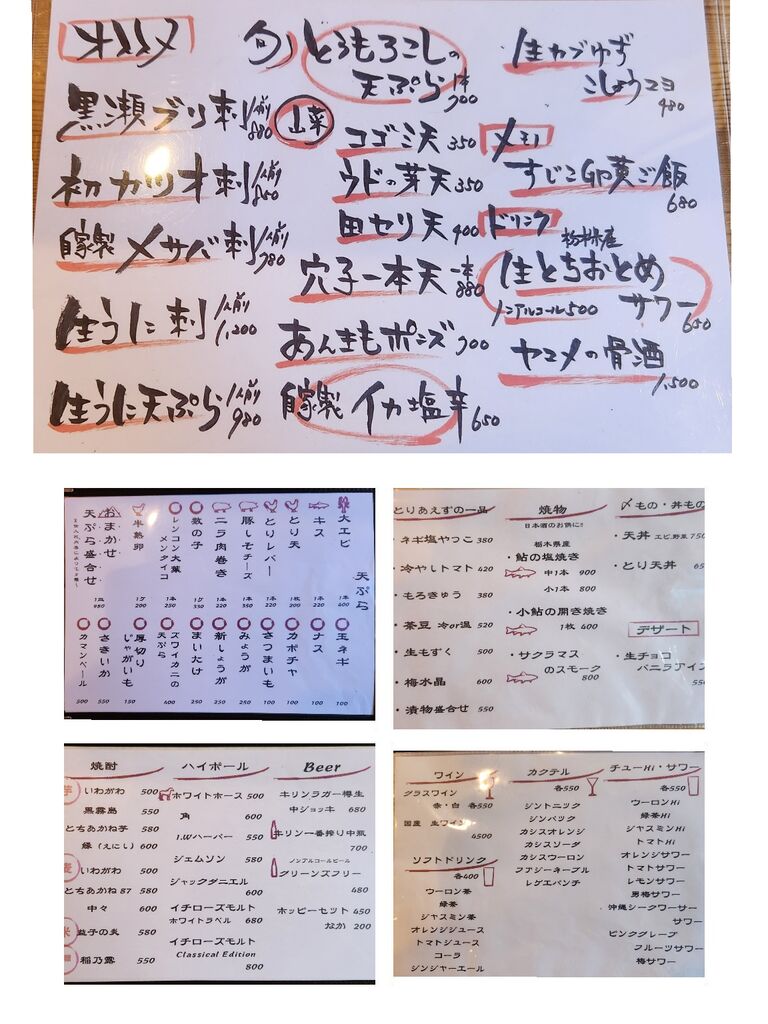 オススメ
黒瀬ブリ刺 1人前 880
初カツオ刺 1人前 850
自家製 〆サバ刺 1人前 780
生うに刺 1人前 1,200
生うに天ぷら 1人前 980
旬 とうもろこしの
天ぷら 1本 700
山菜
コゴミ天 350
ウドの芽天 350
田セリ天 400
穴子一本天 一本 880
あんきもポンズ 700
自家製 イカ塩辛 650
生カブゆず
こしょうマヨ 480
〆モノ
すじこ卵黄ご飯 680
ドリンク
栃木県産
生とちおとめ
サワー 650
ノンアルコール 500
ヤマメの骨酒
1,500
天ぷら
大エビ 1本 400
キス 1本 220
とり天 1枚 200
とりレバー 1本 220
豚しそチーズ 1本 350
ニラ肉巻き 1本 220
数の子 1本 350
レンコン大葉
メンタイコ 1本 250
半熟卵 1ケ 200
おまかせ
天ぷら盛合せ 1皿 980
玉ネギ 100
ナス 100
カボチャ 100
さつまいも 100
みょうが 250
新しょうが 250
まいたけ 250
ズワイカニの
天ぷら 400
厚切り
じゃがいも 150
さきいか 550
カマンベール 500
とりあえずの一品
・ネギ塩やっこ 380
・冷やしトマト 420
・もろきゅう 380
・茶豆 冷or温 520
・生もずく 500
・梅水晶 600
・漬物盛合せ 550
焼物
日本酒のお供に!!
栃木県産
・鮎の塩焼き
中1本 900
小1本 800
・小鮎の開き焼き
1枚 400
・サクラマス
のスモーク
800
〆もの・丼もの
・天丼 エビ,野菜 750
・とり天丼 65
デザート
・生チョコ
バニラアイス
55
焼酎
芋
いわがわ 500
黒霧島 550
とちあかね芋 580
縁(えにし) 600
麦
いわがわ 500
とちあかね87 580
中々 600
米
益子の炎 580
稲乃露 550
ハイボール
ホワイトホース 500
角 600
I.Wハーパー 550
ジェムソン 580
ジャックダニエル
600
イチローズモルト
ホワイトラベル 680
イチローズモルト
Classical Edition
800
Beer
キリンラガー樽生
中ジョッキ 680
キリン一番搾り中瓶
700
ノンアルコールビール
グリーンズフリー
480
ホッピーセット 450
なか 200
ワイン
グラスワイン
赤・白 各550
国産 生ワイン
4500
ソフトドリンク
各400
ウーロン茶
緑茶
ジャスミン茶
オレンジジュース
トマトジュース
コーラ
ジンジャーエール
カクテル
各550
ジントニック
ジンバック
カシスオレンジ
カシスソーダ
カシスウーロン
ファジーネーブル
レゲエパンチ
チューHi・サワー
各550
ウーロンHi
緑茶Hi
ジャスミンHi
トマトHi
オレンジサワー
トマトサワー
レモンサワー
男梅サワー
沖縄シークワーサー
サワー
ピンクグレープ
フルーツサワー
梅サワー